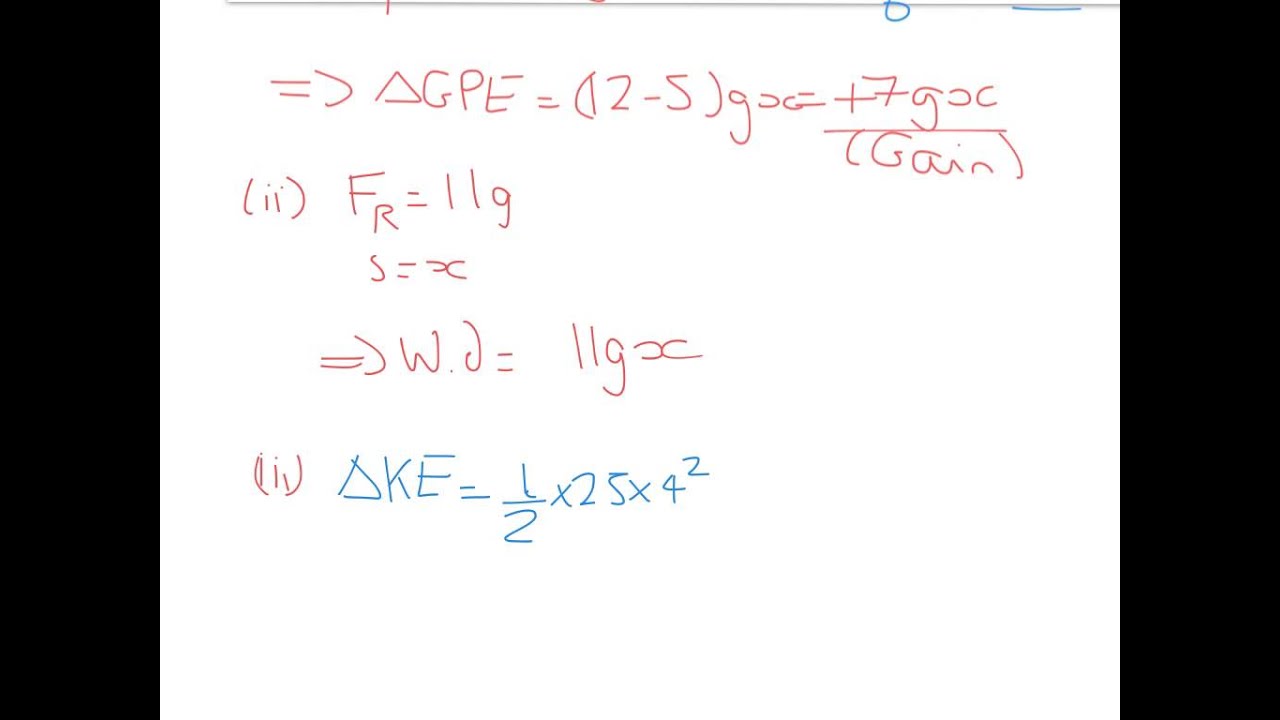 => ΔGPE = (12-5)gx = +7gx
(Gain)
(ii) F_R = 11g
s = x
=> W.D = 11gx
(iii) ΔKE = 1/2 × 25 × 4²